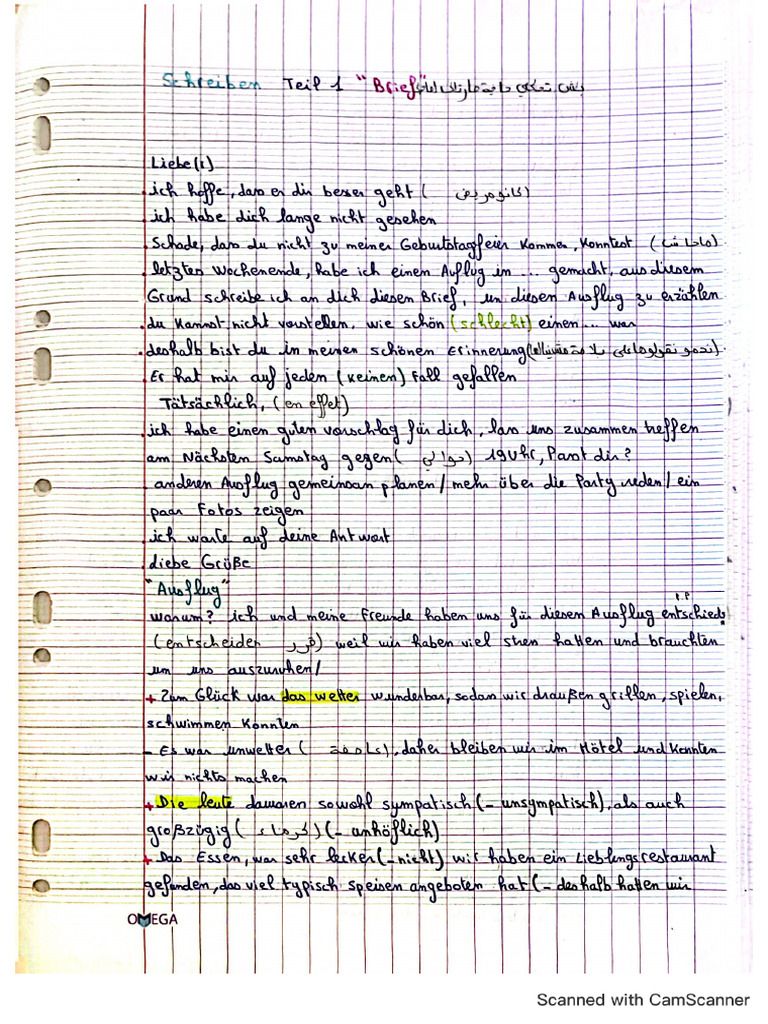 Schreiben Teil 1 "Brief"
Liebe(r)
ich hoffe, dass es dir besser geht ( كانو مريض )
ich habe dich lange nicht gesehen
Schade, dass du nicht zu meiner Geburtstagfeier kommen, konntest ( ماجاش )
letztes Wochenende, habe ich einen Auflug in ... gemacht, aus diesem
Grund schreibe ich an dich diesen Brief, um diesen Ausflug zu erzählen
du kannst nicht vorstellen, wie schön (schlecht) einen ... war
deshalb bist du in meinen schönen Erinnerung
Er hat mir auf jeden (keinen) Fall gefallen
Tätsächlich, (en effet)
ich habe einen guten vorschlag für dich, lass uns zusammen treffen
am Nächsten Samstag gegen ( حوالي ) 19 Uhr, Passt dir?
anderen Ausflug gemeinsam planen / mehr über die Party reden / ein
paar Fotos zeigen
ich warte auf deine Antwort
liebe Grüße
"Ausflug"
P.P
warum? ich und meine Freunde haben uns für diesem Ausflug entschieds
(entscheiden قرر ) weil wir haben viel stren hatten und brauchten
um uns auszuruhen /
+ Zum Glück war das wetter wunderbar, sodass wir draußen grillen, spielen,
schwimmen konnten
- Es war unwetter ( عاصفة ), daher bleiben wir im Hôtel und konnten
wir nichts machen
+ Die leute dawaren sowohl sympatisch (- unsympatisch), als auch
großzügig ( كرماء ) (- anhöflich)
+ Das Essen, war sehr lecker (- nicht) wir haben ein Lieblingsrestaurant
gefunden, das viel typisch speisen angeboten hat (- deshalb hatten wir
OMEGA
Scanned with CamScanner